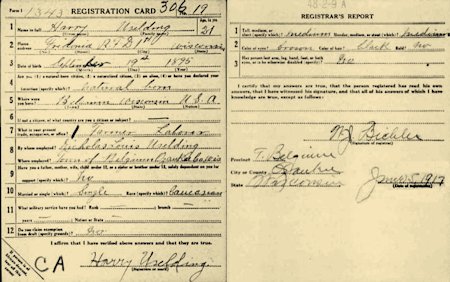 Form 1 1343 REGISTRATION CARD 306 No. 19
1 Name in full Harry Uselding Age, in yrs. 21
2 Home address Fredonia R F D 1 Wisconsin
3 Date of birth September 19th 1895
4 Are you (1) a natural-born citizen, (2) a naturalized citizen, (3) an alien, (4) or have you declared your intention (specify which)? Natural born
5 Where were you born? Belgium Wisconsin U.S.A
6 If not a citizen, of what country are you a citizen or subject?
7 What is your present trade, occupation, or office? Farmer Laborer
8 By whom employed? Nicholas Uselding
Where employed? Town of Belgium Ozaukee Co Wis
9 Have you a father, mother, wife, child under 12, or a sister or brother under 12, solely dependent on you for support (specify which)? No
10 Married or single (which)? Single Race (specify which)? Caucasian
11 What military service have you had? Rank branch
years Nation or State
12 Do you claim exemption from draft (specify grounds)? No
I affirm that I have verified above answers and that they are true.
CA
Harry Uselding
(Signature or mark)
48-2-9 A
REGISTRAR'S REPORT
1 Tall, medium, or short (specify which)? medium Slender, medium, or stout (which)? medium
2 Color of eyes? brown Color of hair? Dark Bald? No
3 Has person lost arm, leg, hand, foot, or both eyes, or is he otherwise disabled (specify)? No
I certify that my answers are true, that the person registered has read his own answers, that I have witnessed his signature, and that all of his answers of which I have knowledge are true, except as follows:
Bichler
(Signature of registrar)
Precinct T. Belgium
City or County Ozaukee
State Wisconsin
June 5, 1917
(Date of registration)